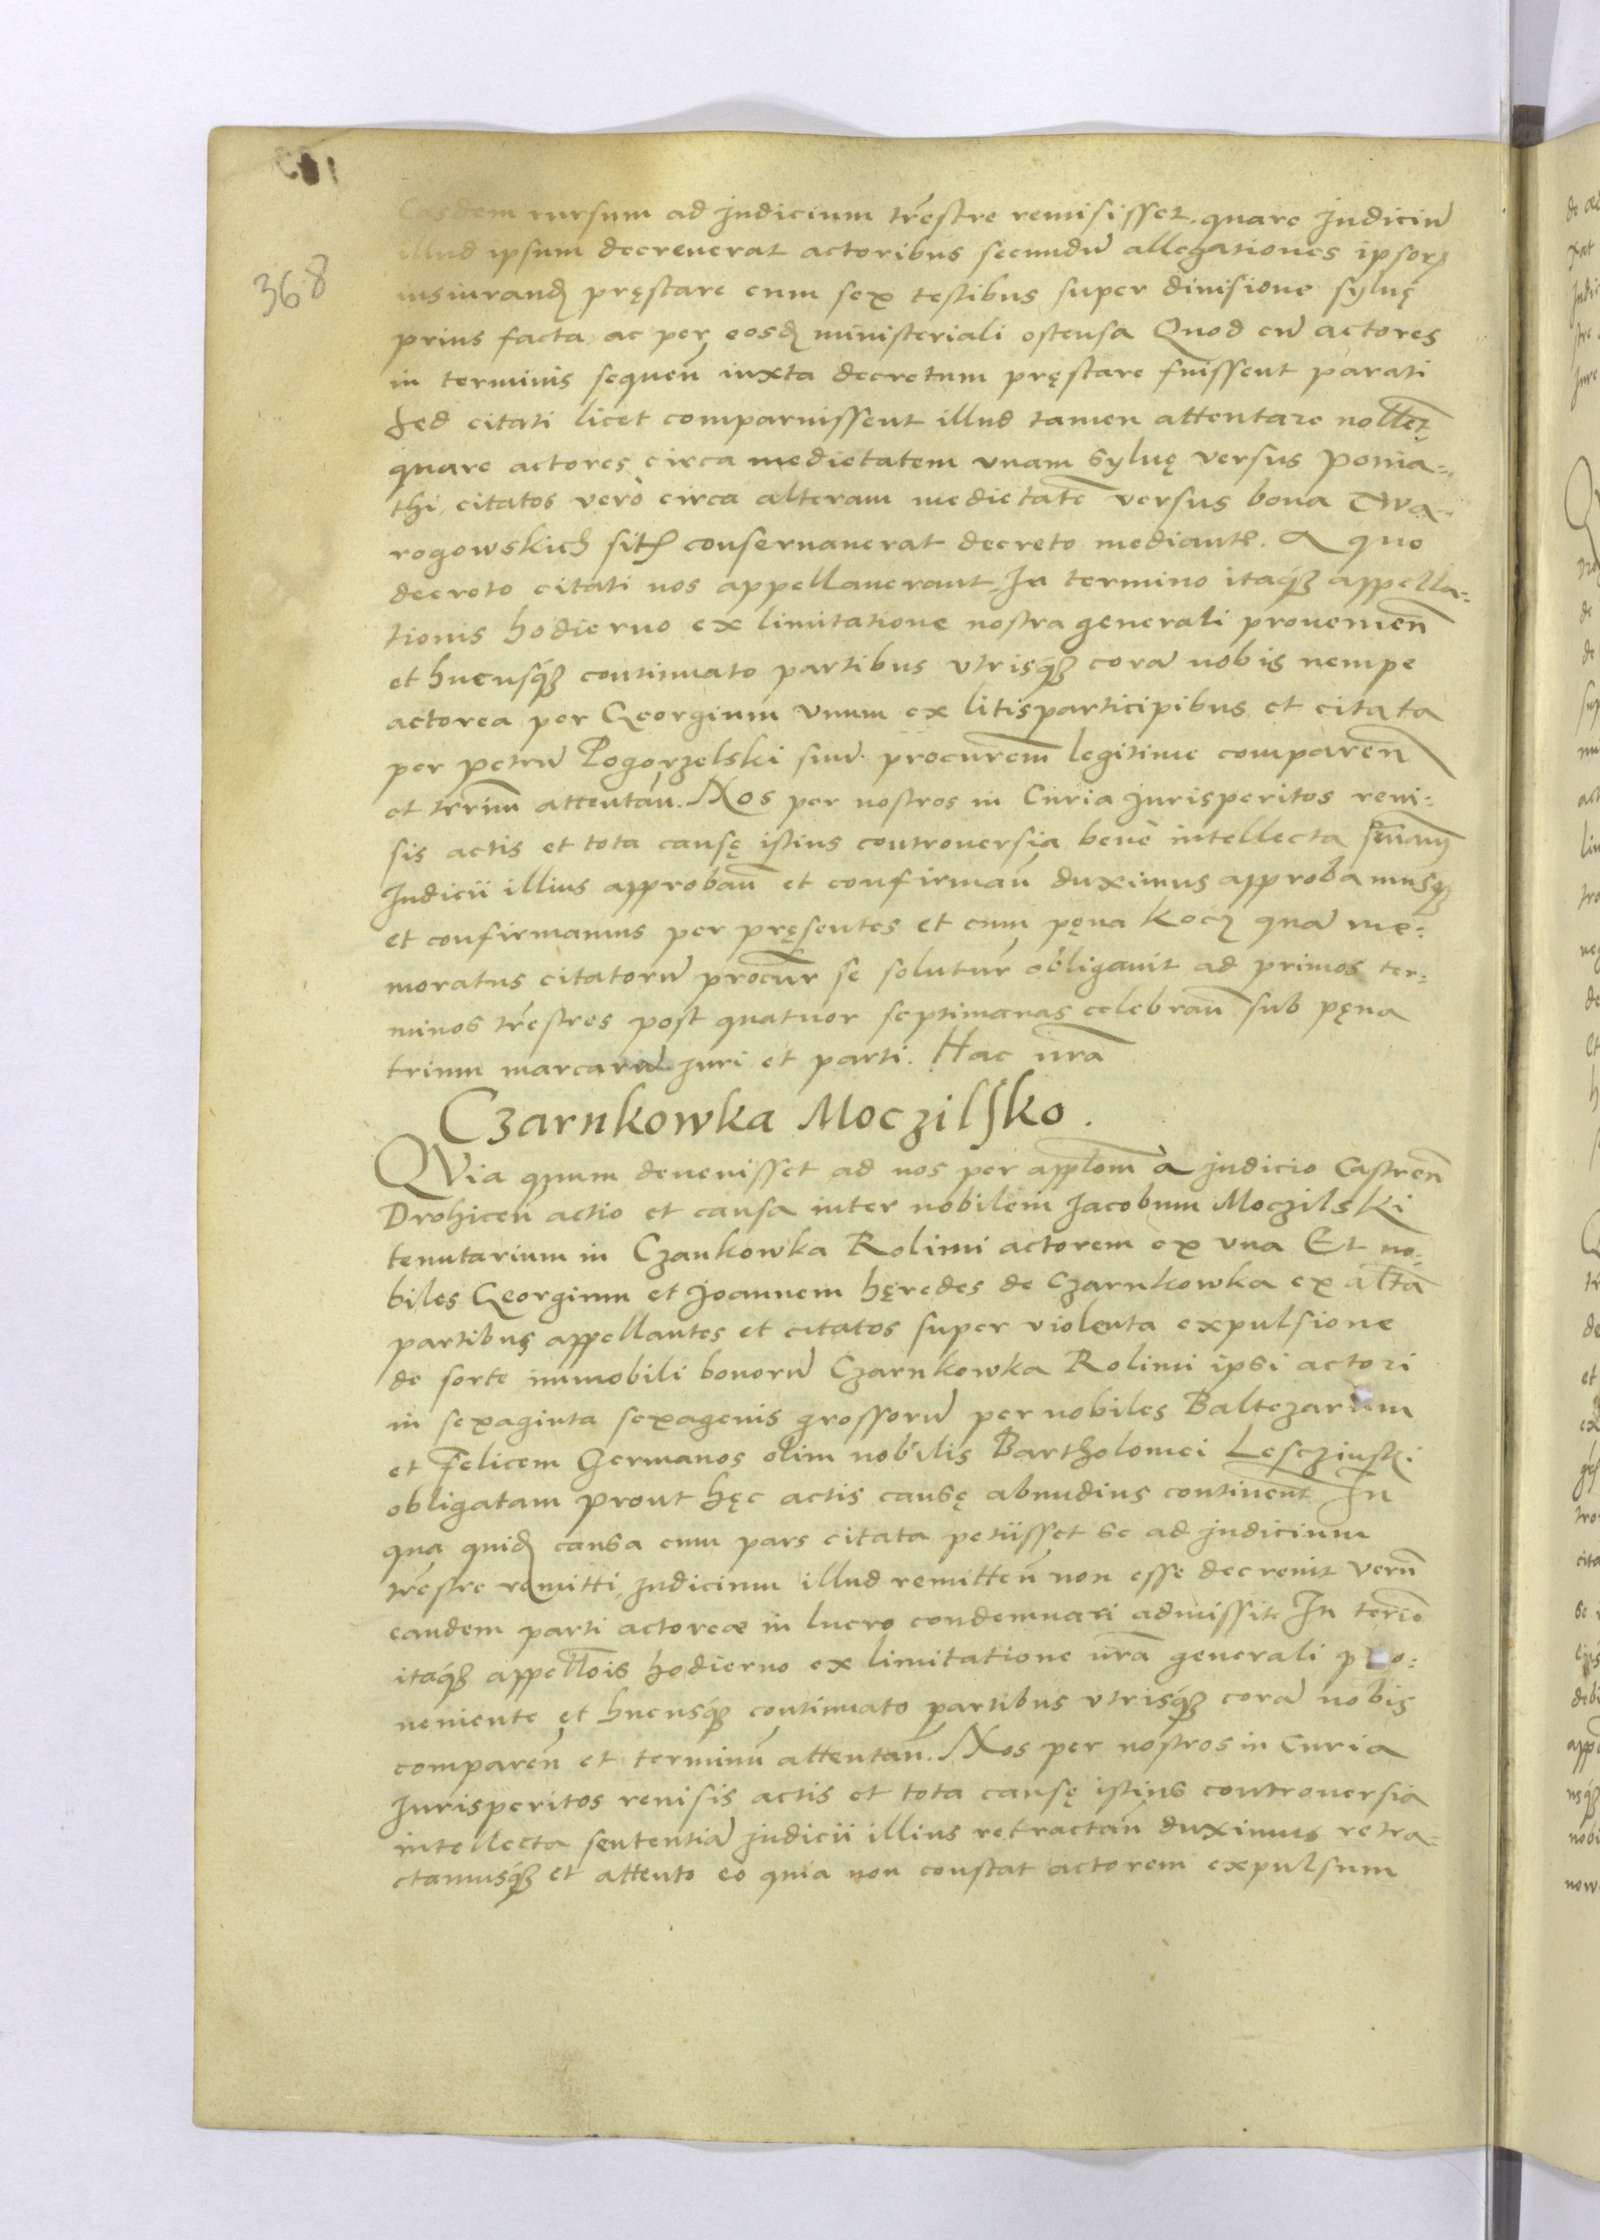 368
Easdem rursum ad judicium trestre remisisset. quare judiciu
illud ipsum decreuerat actoribus secundu allegationes ipsorz
iusiurand pręstare cum sex testibus super diuisione syluę
prius facta ac per eosd ministeriali ostensa Quod cu actores
in terminis sequen iuxta decretum pręstare fuissent parati
Sed citati licet comparuissent illud tamen attentare nollet
quare actores circa medietatem vnam syluę versus ponia=
thi, citatos verò circa alteram medietate versus bona Twa=
rogowskich sitas conseruauerat decreto mediante. A quo
decreto citati nos appellauerant. In termino itaq appella=
tionis hodierno ex limitatione nostra generali prouenien
et hucusq continuato partibus vtrisq cora nobis nempe
actorea per Georgium vnum ex litisparticipibus et citata
per petru Pogorzelski suu procurem legitime comparen
et termin attentan. Nos per nostros in Curia jurisperitos reui=
sis actis et tota causę istius controuersia bene intellecta sniam
Judicii illius approban et confirman duximus approbamusq
et confirmamus per pręsentes et cum pęna kocz qua me=
moratus citatoru procur se solutur obligauit ad primos ter=
minos trestres post quatuor septimanas celebran sub pęna
trium marcaru juri et parti. Hac nra
Czarnkowka Moczilsko.
QVia quum deuenisset ad nos per applom à judicio Castren
Drohicen actio et causa inter nobilem Jacobum Moczilski
tenutarium in Czankowka Rolimi actorem ex vna Et no=
biles Georgium et Joannem hęredes de Czarnkowka ex alta
partibus appellantes et citatos super violenta expulsione
de sorte immobili bonoru Czarnkowka Rolimi ipsi actori
in sexaginta sexagenis grossoru per nobiles Baltezarum
et Felicem Germanos olim nobilis Bartholomei Lescziński
obligatam prout hęc actis causę abundius continent In
qua quid causa cum pars citata petiisset se ad judicium
trestre remitti, judicium illud remitten non esse decreuit verum
eandem parti actoreæ in lucro condemnari admissit. In terio
itaq appellois hodierno ex limitatione nra generali pro=
ueniente et hucusq continuato partibus vtrisq cora nobis
comparen et terminu attentan. Nos per nostros in Curia
Jurisperitos reuisis actis et tota causę istius controuersia
intellecta sententia judicii illius retractan duximus retra=
ctamusq et attento eo quia non constat actorem expulsum